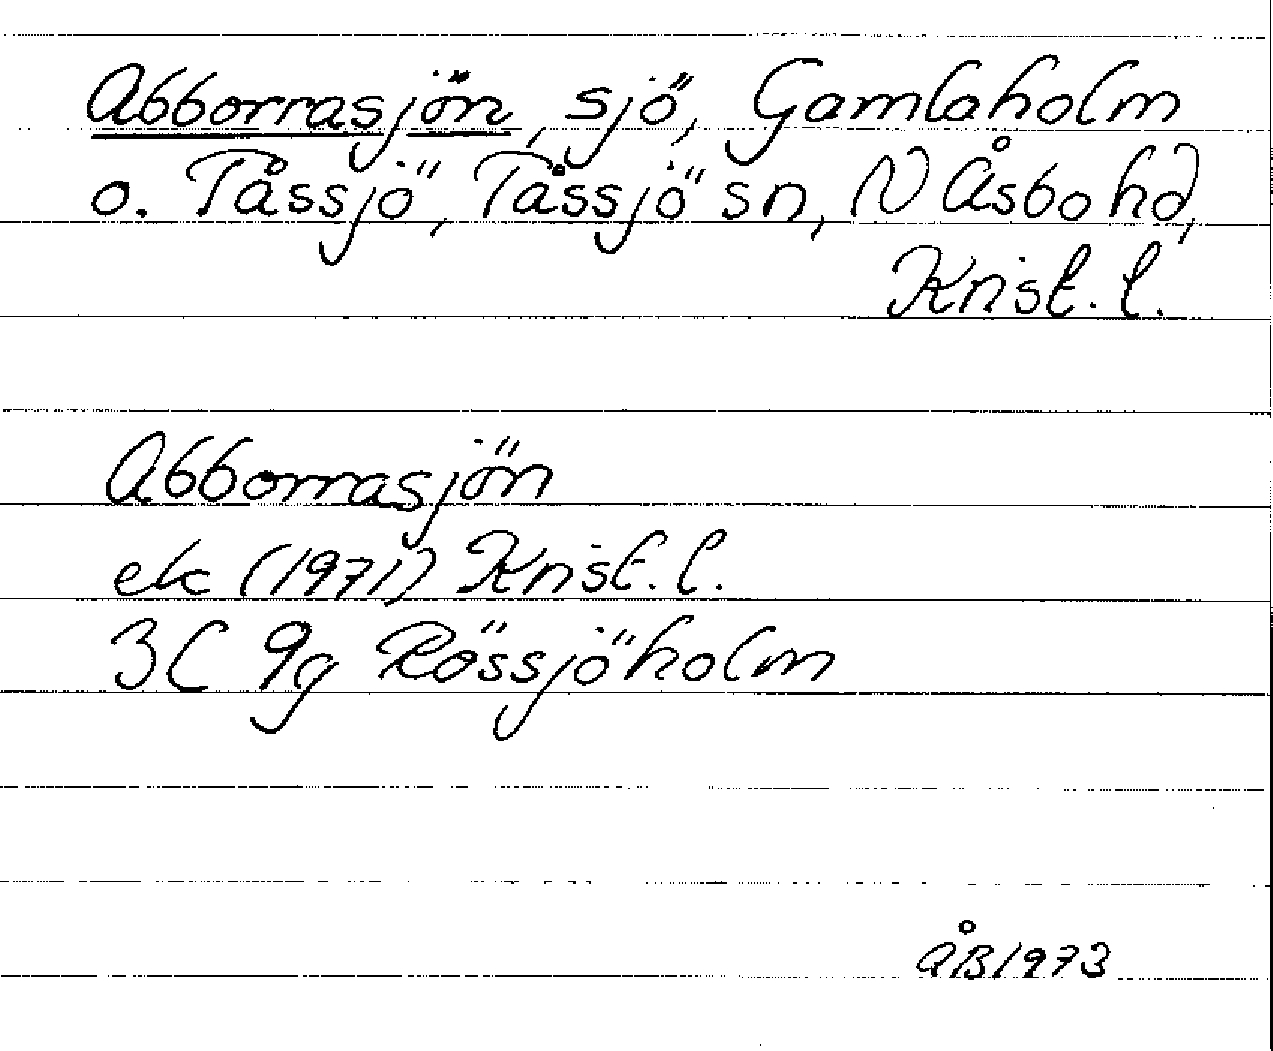 Abborrasjön, sjö, Gamlaholm
o. Tåssjö, Tåssjö sn, N Åsbo hd,
Krist. l.
Abborrasjön
ek (1971) Krist. l.
3C 9g Rössjöholm
ÅB 1973